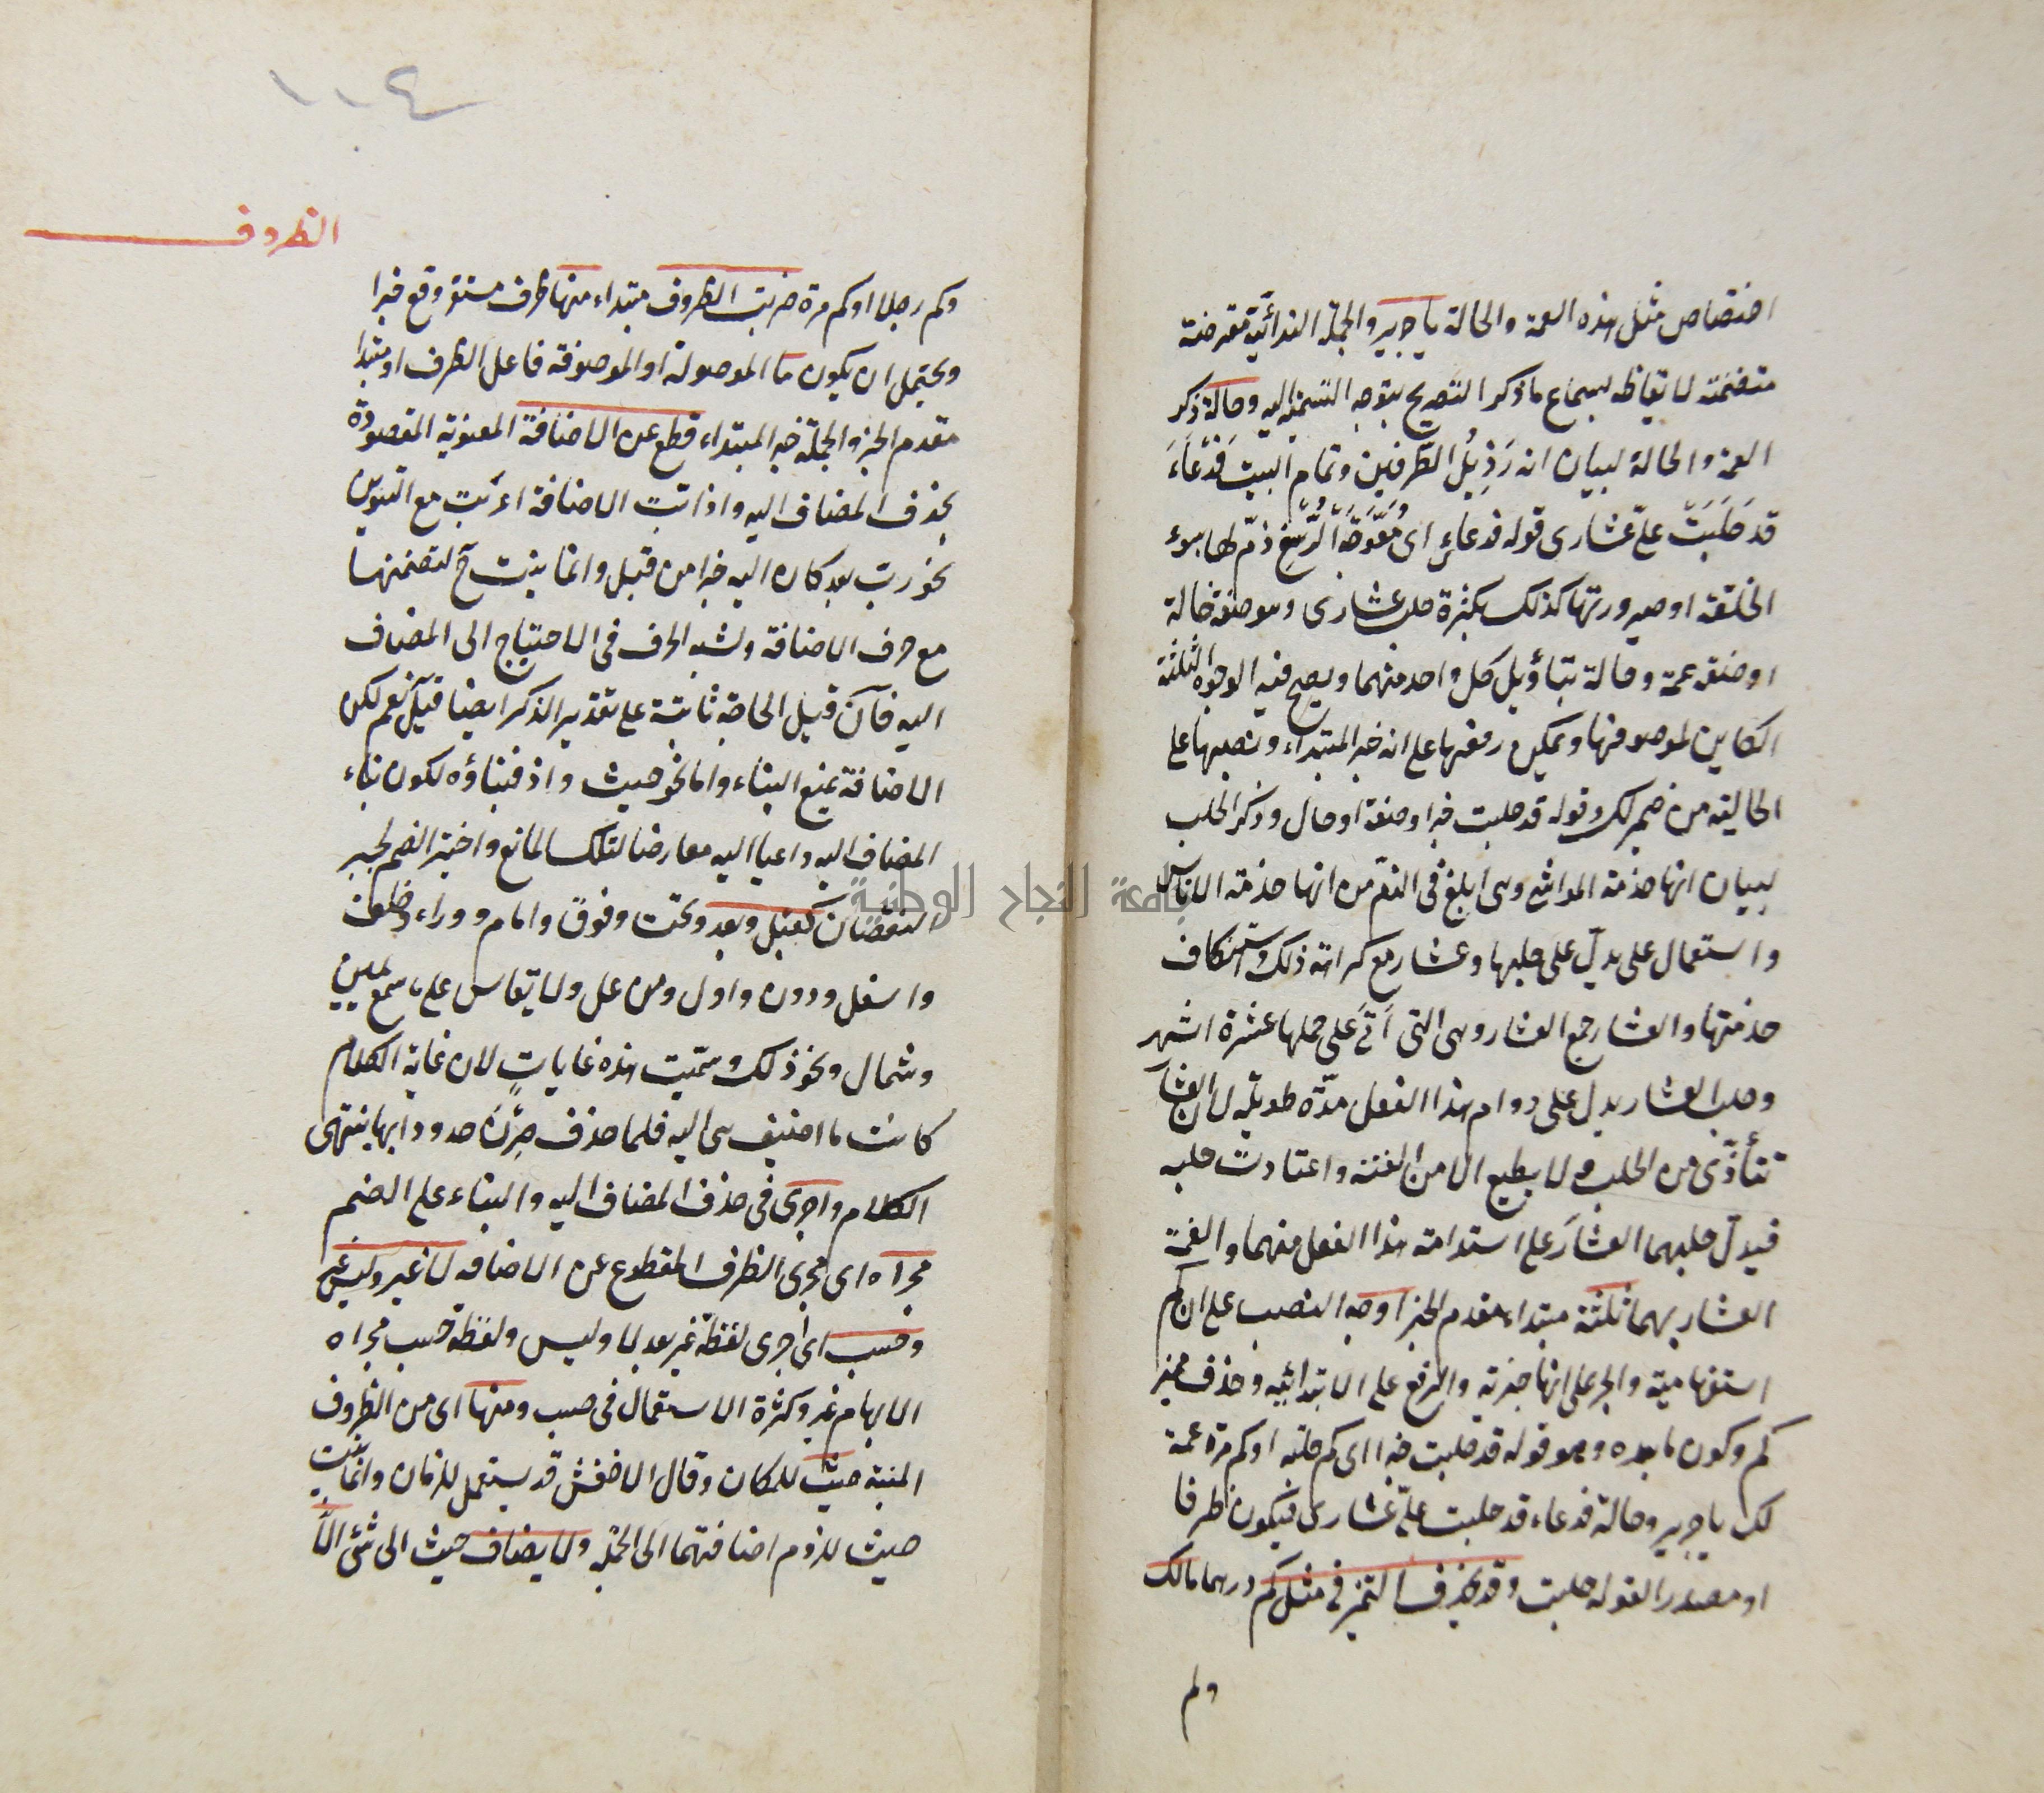 اختصاص مثل هذه العمة والخالة يا جرير والجملة الندائية معترضة
متضمنة لايقاظه لسماع ما ذكر التصريح بتوجه التسمية اليه وخالة ذكر
العمة والخالة لبيان انه رذيل الطرفين وتمام البيت فدعاء
قد حلبت علي عشاري قوله فدعاء اى معوجة الرسغ ذم لها بسوء
الخلقة او صيرورتها كذلك بكثرة حلب عشارى وهو صفة خالة
او صفة عمة وخالة بتأويل كل واحد منهما ويصح فيه الوجوه الثلثة
الكاين لموصوفها ويمكن رفعها على انه خبر المبتداء ونصبها على
الحالية من ضمير لك وقوله قد حلبت خبر او صفة او حال وذكر الحلب
لبيان انها خدمة المواشى وهى ابلغ فى الذم من انها خدمة الاناس
واستعمال على يدل على حلبها وعشار مع كراهة ذلك واستنكاف
خدمتها والعشار جمع العشار وهى التى أتى على حملها عشرة اشهر
وحلب العشار يدل على دوام هذا الفعل مدة طويلة لان العشار
تتأذى من الحلب ولا يطيع الا من الفته واعتادت حلبه
فيدل حلبهما العشار على استدامة هذا الفعل منهما والفة
العشار بهما ثلثة مبتداء مقدم الخبر اوجه النصب على ان كم
استفهامية والجر على انها خبرية والرفع على الابتدائيه وحذف مميز
كم وكون ما بعده وهو قوله قد حلبت خبرا اى كم حلبة او كم مرة عمة
لك يا جرير وخالة فدعاء قد حلبت على عشارى فيكون ظرفا
او مصدرا لقوله حلبت وقد يحذف التميز فى مثل كم درهما مالك
ولم
١٠٤
الظروف
وكم رجلا او كم مرة ضربت الظروف مبتداء منها ظرف مستقر وقع خبرا
ويحتمل ان يكون ما الموصولة او الموصوفة فاعل الظرف او مبتدا
مقدم الخبر والجملة خبر المبتداء قطع عن الاضافة المعنوية المقصودة
بحذف المضاف اليه واذا اعربت مع التنوين
نحو رب بعد كان اليه خيرا من قبل وانما بنيت ح لتضمنها
مع حرف الاضافة ولشبه الحرف فى الاحتياج الى المضاف
اليه فان قيل الحاجة ثابتة على تقدير الذكر ايضا قيل نعم لكن
الاضافة تمنع البناء واما نحو حيث واذ فبناؤه لكون بناء
المضاف اليه داعيا اليه معارضا لتلك المانع واختير الضم لجبر
النقصان كقبل وبعد وتحت وفوق وامام ووراء وخلف
واسفل ودون واول ومن عل ولا يقاس على ما سمع يمين
وشمال ونحو ذلك وسميت هذه غايات لان غاية الكلام
كانت ما اضيف هى اليه فلما حذف صرن حدودا بها ينتهى
الكلام واجرى فى حذف المضاف اليه والبناء على الضم
مجراه اى مجرى الظرف المقطوع عن الاضافه لا غير وليس غير
وحسب اى اجرى لفظة غير بعد لا وليس ولفظة حسب مجراه
الابهام غير وكثرة الاستعمال فى حسب ومنها اى من الظروف
المبنية حيث للمكان وقال الاخفش قد يستعمل للزمان وانما بنيت
حيث للزوم اضافتها الى الجملة ولا يضاف حيث الى شئ الا
جامعة النجاح الوطنية